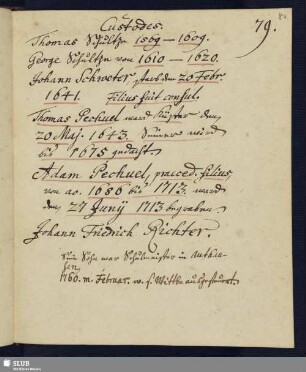 Custodes.
79.
Thomas Schultze 1569 — 1609.
George Schultze von 1610 — 1620.
Johann Schroeter starb den 20 Febr
1641. Filius fuit consul.
Thomas Pechuel ward Küster den
20 Maj. 1643. Seiner wird
bis 1675 gedacht.
Adam Pechuel, praeced. filius,
von ao. 1680 bis 1713. ward
den 27 Junij 1713 begraben.
Johann Friedrich Richter.
Sein Sohn war Schulmeister in Authau-
sen,
1760. m. Februar. w. s. Wittbe
SLUB